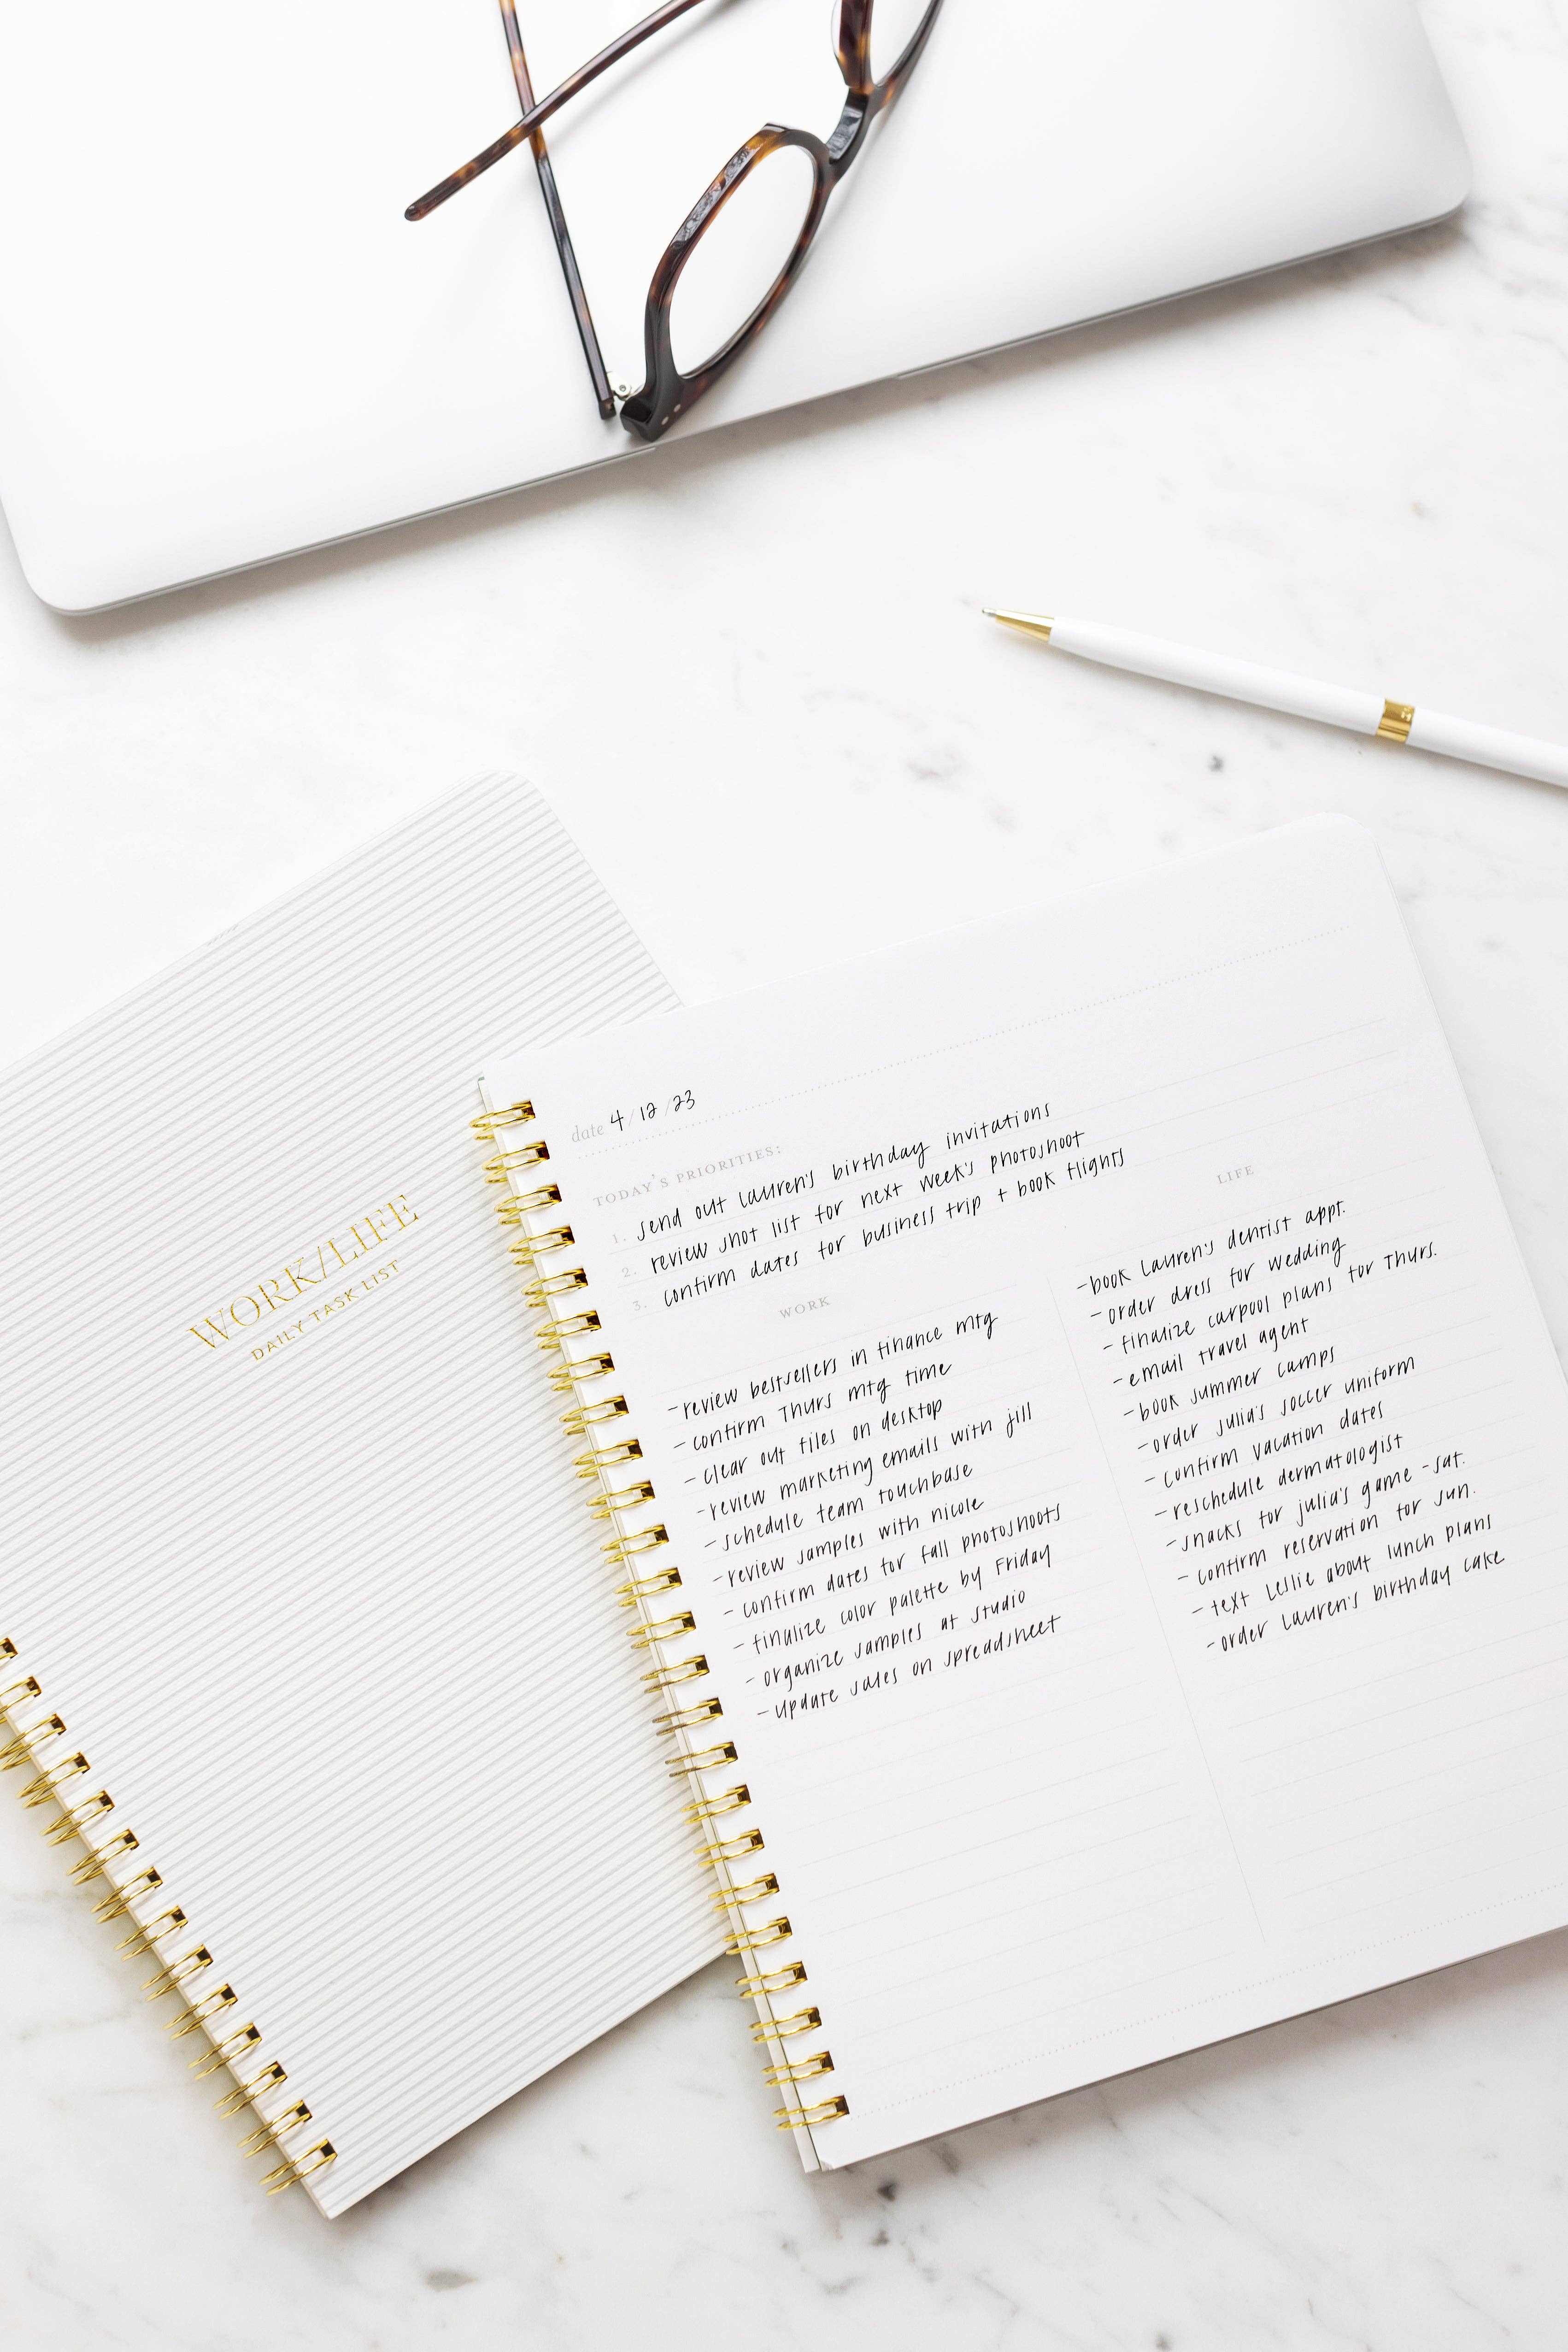 WORK/LIFE
DAILY TASK LIST
date 4/12/23
TODAY'S PRIORITIES:
1. send out Lauren's birthday invitations
2. review shot list for next week's photoshoot
3. confirm dates for business trip + book flights
WORK
- review bestsellers in finance mtg
- confirm Thurs mtg time
- clear out files on desktop
- review marketing emails with jill
- schedule team touchbase
- review samples with nicole
- confirm dates for fall photoshoots
- finalize color palette by Friday
- organize samples at studio
- update sales on spreadsheet
LIFE
- book Lauren's dentist appt.
- order dress for wedding
- finalize carpool plans for Thurs.
- email travel agent
- book summer camps
- order julia's soccer uniform
- confirm vacation dates
- reschedule dermatologist
- snacks for julia's game - sat.
- confirm reservation for sun.
- text Leslie about lunch plans
- order Lauren's birthday cake